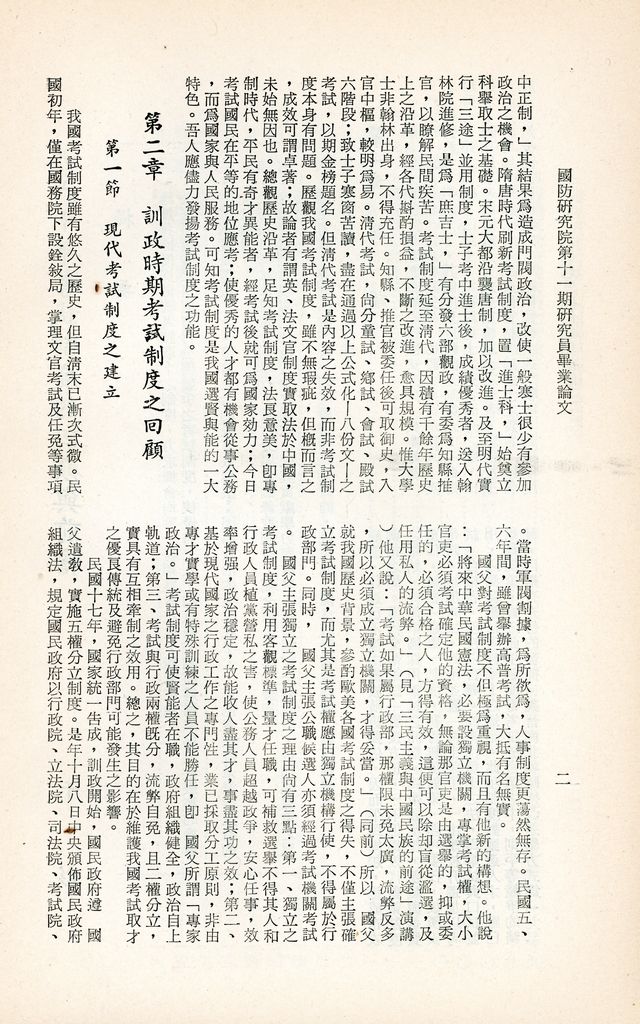 國防研究院第十一期研究員畢業論文
二
中正制，」其結果爲造成門閥政治，改使一般寒士很少有參加
政治之機會。隋唐時代刷新考試制度，置「進士科，」始奠立
科舉取士之基礎。宋元大都沿襲唐制，加以改進。及至明代實
行「三途」並用制度，士子考中進士後，成績優秀者，送入翰
林院進修，是爲「庶吉士，」有分發六部觀政，有委爲知縣推
官，以瞭解民間疾苦。考試制度延至清代，因積有千餘年歷史
上之沿革，經各代斟酌損益，不斷之改進，愈具規模。惟大學
士非翰林出身，不得充任。知縣、推官被委任後可取御史，入
官中樞，較明爲易。清代考試，尙分童試、鄉試、會試、殿試
六階段；致士子寒窗苦讀，盡在通過以上公式化—八份文—之
考試，以期金榜題名。但清代考試是內容之失效，而非考試制
度本身有問題。歷觀我國考試制度，雖不無瑕疵，但概而言之
，成效可謂卓著；故論者有謂英、法文官制度實取法於中國，
未始無因也。總觀歷史沿革，足知考試制度，法良意美，卽專
制時代，平民有奇才異能者，經考試後就可爲國家効力；今日
考試國民在平等的地位應考；使優秀的人才都有機會從事公務
，而爲國家與人民服務。可知考試制度是我國選賢與能的一大
特色。吾人應儘力發揚考試制度之功能。
第二章　訓政時期考試制度之回顧
第一節　現代考試制度之建立
我國考試制度雖有悠久之歷史，但自淸末已漸次式微。民
國初年，僅在國務院下設銓敍局，掌理文官考試及任免等事項
。當時軍閥割據，爲所欲爲，人事制度更蕩然無存。民國五、
六年間，雖曾舉辦高普考試，大抵有名無實。
國父對考試制度不但極爲重視，而且有他新的構想。他說
：「將來中華民國憲法，必要設獨立機關，專掌考試權，大小
官吏必須考試確定他的資格，無論那官吏是由選舉的，抑或委
任的，必須合格之人，方得有效，這便可以除却盲從濫選，及
任用私人的流弊。」（見「三民主義與中國民族的前途」演講
）他又說：「考試如果屬行政部，那權限未免太廣，流弊反多
，所以必須成立獨立機關，才得妥當。」（同前）所以　國父
就我國歷史背景，參酌歐美各國考試制度之得失，不僅主張確
立考試制度，而尤其是考試權應由獨立機構行使，不得屬於行
政部門。同時，　國父主張公職候選人亦須經過考試機關考試
。　國父主張獨立之考試制度之理由尙有三點：第一、獨立之
考試制度，利用客觀標準，量才任職，可補救選舉不得其人和
行政人員植黨營私之害，使公務人員超越政爭，安心任事，效
率增强，政治穩定，故能收人盡其才，事盡其功之效；第二、
基於現代國家之行政工作之專門性，業已採取分工原則，非由
專才實學或有特殊訓練之人員不能勝任，卽　國父所謂「專家
政治。」考試制度可使賢能者在職，政府組織健全，政治自上
軌道；第三、考試與行政兩權既分，流弊自免，且二權分立，
實具有互相牽制之效用。總之，其目的在於維護我國考試取才
之優良傳統及避免行政部門可能發生之影響。
民國十七年，國家統一告成，訓政開始，國民政府遵　國
父遺教，實施五權分立制度。是年十月八日中央頒佈國民政府
組織法，規定國民政府以行政院、立法院、司法院、考試院、